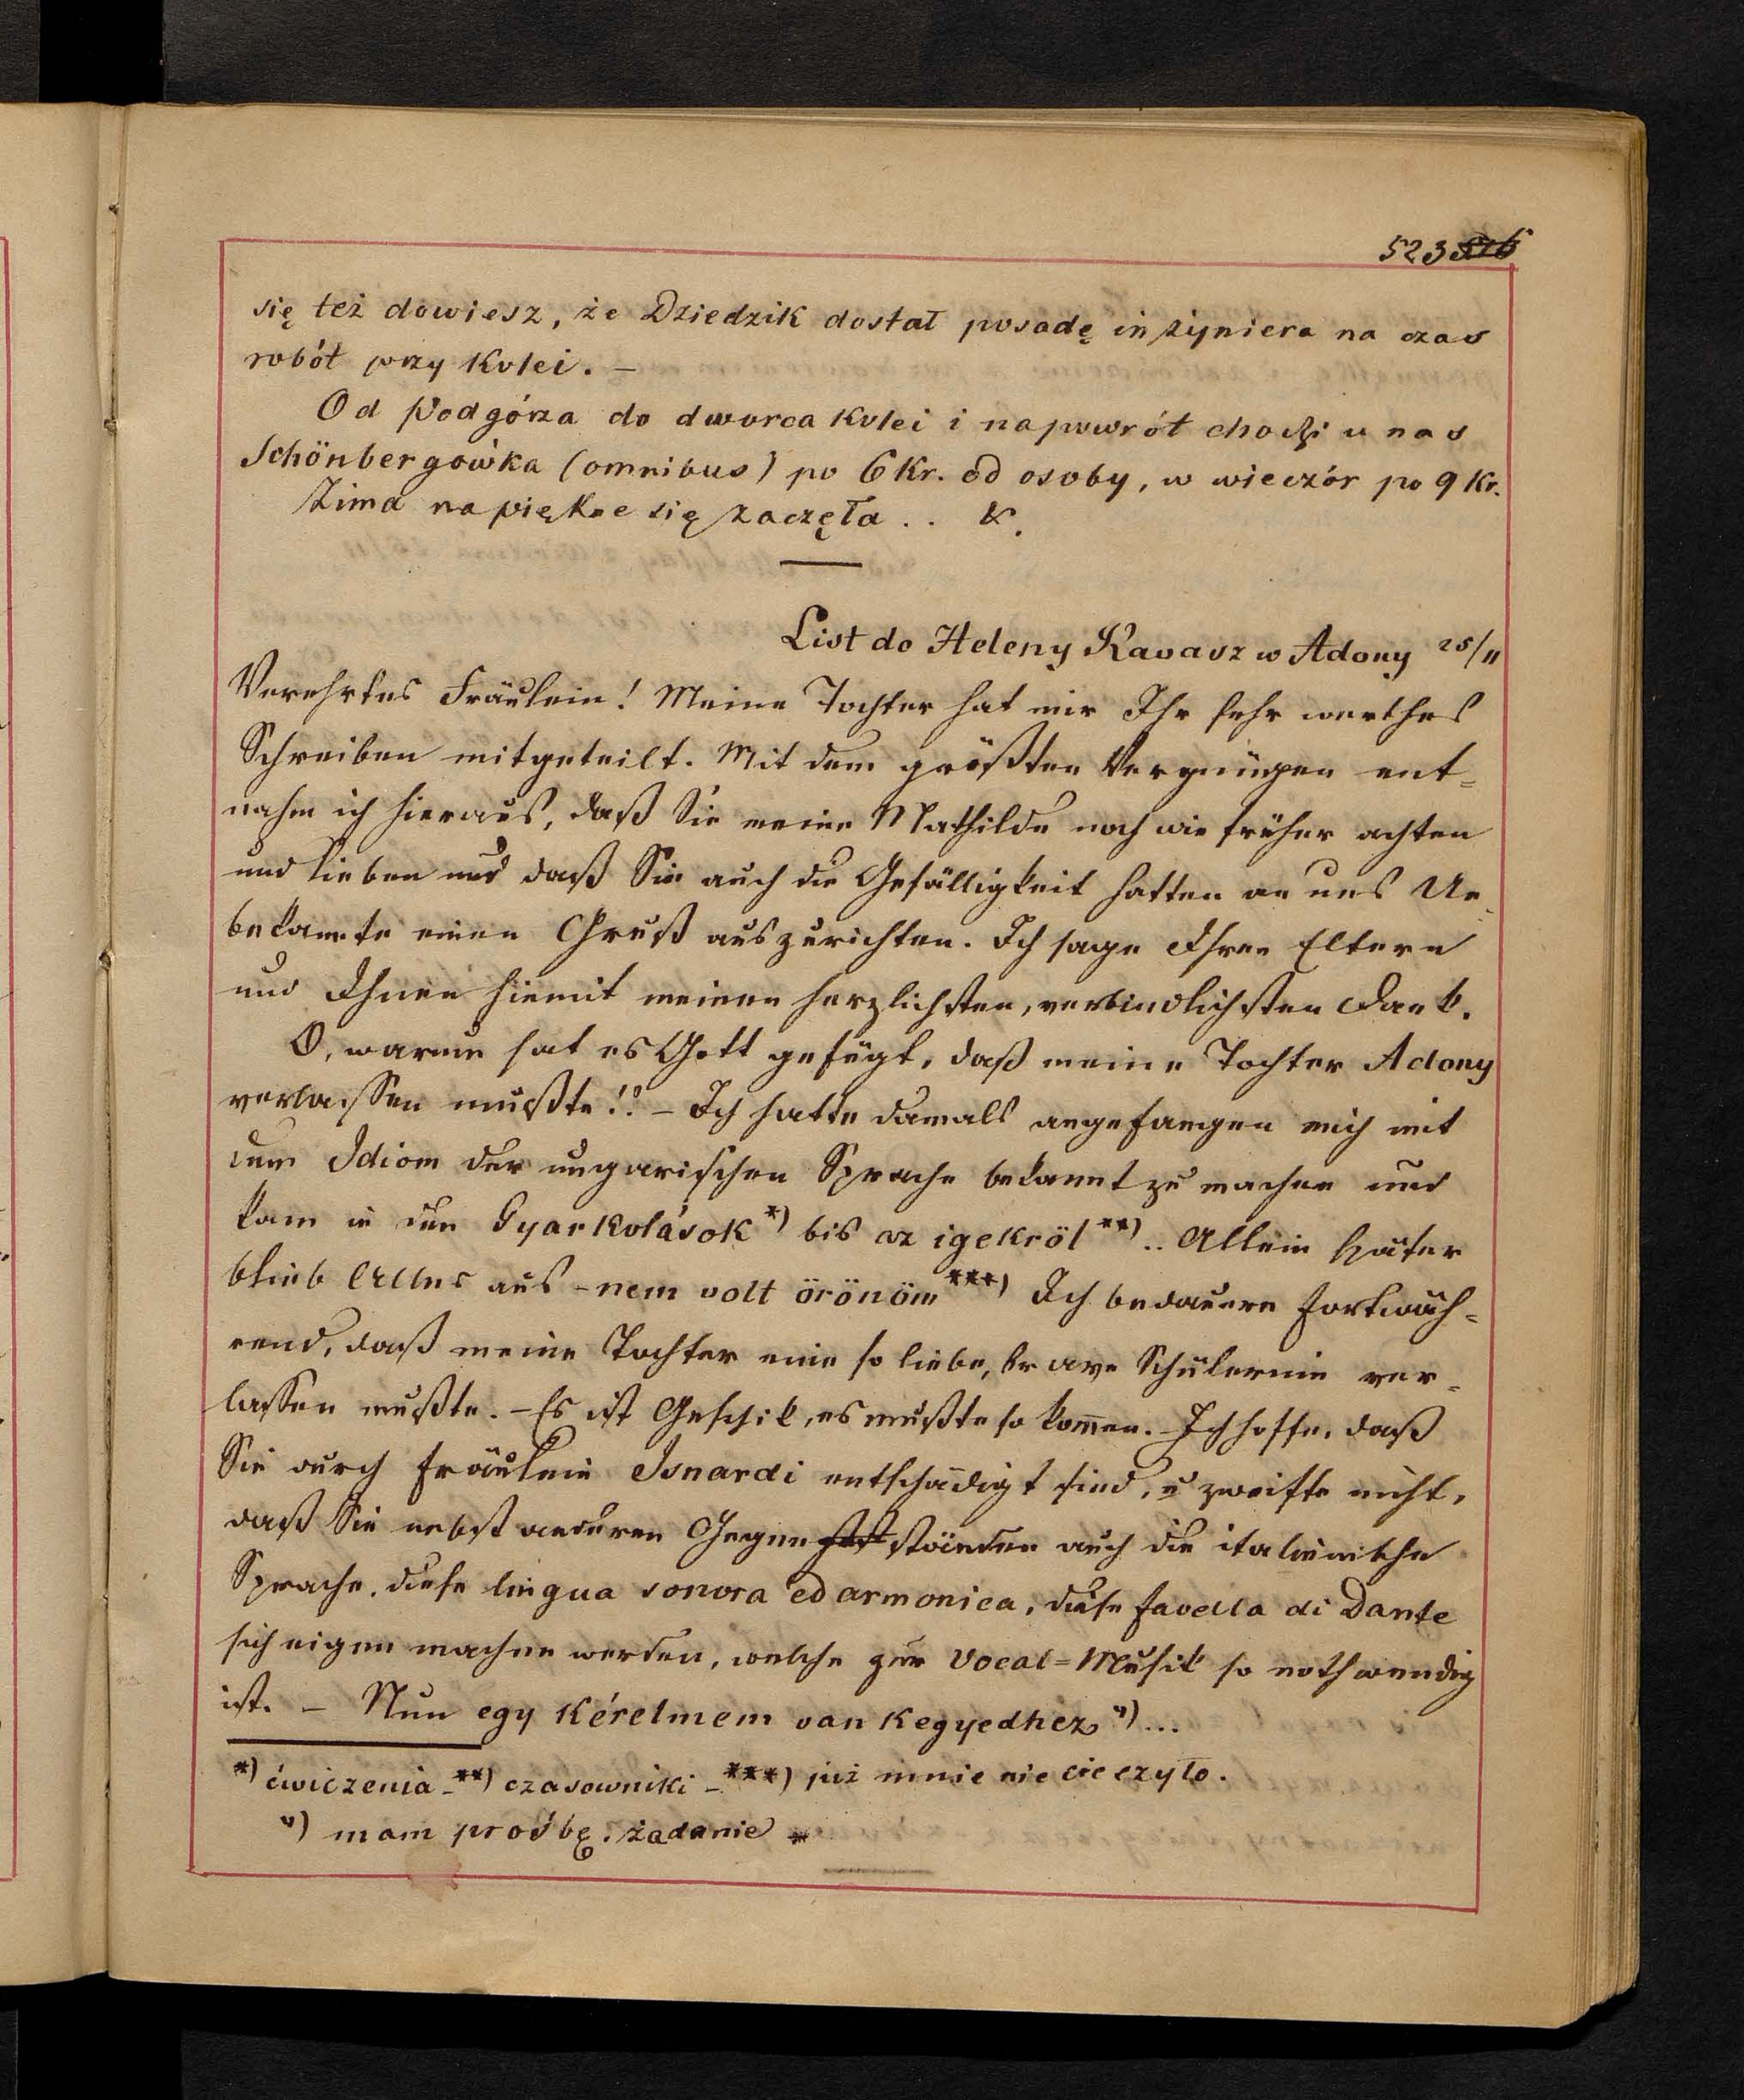 523
się też dowiesz, że Dziedzik dostał posadę inżyniera na czas
robót przy Kolei. –
Od Podgórza do dworca Kolei i napowrót chodzi u nas
Schönbergówka (omnibus) po 6 Kr. od osoby, w wieczór po 9 Kr.
Zima na piękne się zaczęła . . &.
List do Heleny Kavasz w Adony 25/11
Verehrtes Fräulein! Meine Tochter hat mir Ihr sehr werthes
Schreiben mitgeteilt. Mit dem größten Vergnügen ent=
nahm ich hieraus, daß Sie meine Mathilde noch wie früher achten
und lieben und daß Sie auch die Gefälligkeit hatten an uns Un=
bekannte einen Gruß auszurichten. Ich sage Ihren Eltern
und Ihnen hiemit meinen herzlichsten, verbindlichsten Dank.
O, warum hat es Gott gefügt, daß meine Tochter Adony
verlassen mußte!? – Ich hatte damals angefangen mich mit
dem Idiom der ungarischen Sprache bekannt zu machen und
kam in den Gyarkolások *) bis az igekröl **) .. Allein später
blieb Alles aus – nem volt örönöm ***) Ich bedauere fortwäh=
rend, daß meine Tochter eine so liebe, brave Schülerin ver=
lassen mußte. – Es ist Geschik, es mußte so kom̅en. – Ich hoffe, daß
Sie durch Fräulein Isnardi entschädigt sind, u zweifle nicht,
daß Sie nebst anderen Gegenständen auch die italienische
Sprache, diese lingua sonora ed armonica, diese favella di Dante
sich eigen machen werden, welche zur Vocal=Musik so nothwendig
ist. – Nun egy kérelmem van Kegyedhez ")...
*) ćwiczenia – **) czasowniki – ***) już mnie nie cieszyło.
") mam prośbę, żądanie